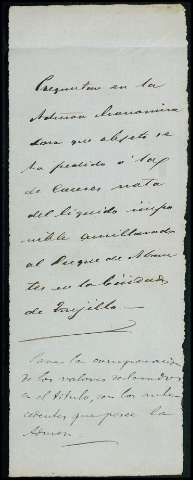 Preguntar en la
Admon Economica
para que objeto se
ha pedido á la
de Caceres nota
del liquido impo
nible amillarado
al Duque de Abran
tes en la Ciudad
de Trujillo
Para la comprobacion
de los valores declarados
en el titulo, con los ante
cedentes que posee la
Admon